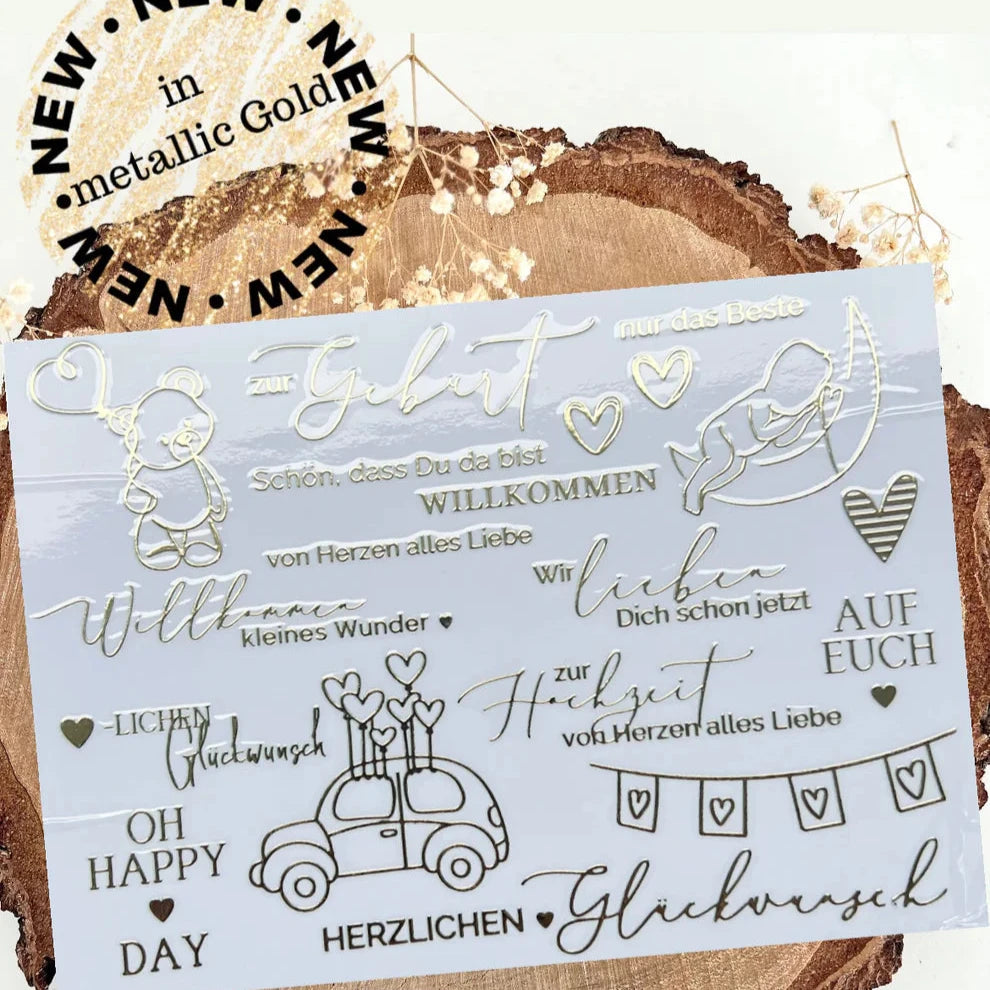 NEW • NEW • NEW • NEW • NEW • NEW • NEW •
in
metallic Gold
zur Geburt
nur das Beste
Schön, dass Du da bist
WILLKOMMEN
von Herzen alles Liebe
Willkommen
kleines Wunder
Wir lieben
Dich schon jetzt
AUF
EUCH
-LICHEN
Glückwunsch
zur
Hochzeit
von Herzen alles Liebe
OH
HAPPY
DAY
HERZLICHEN
Glückwunsch